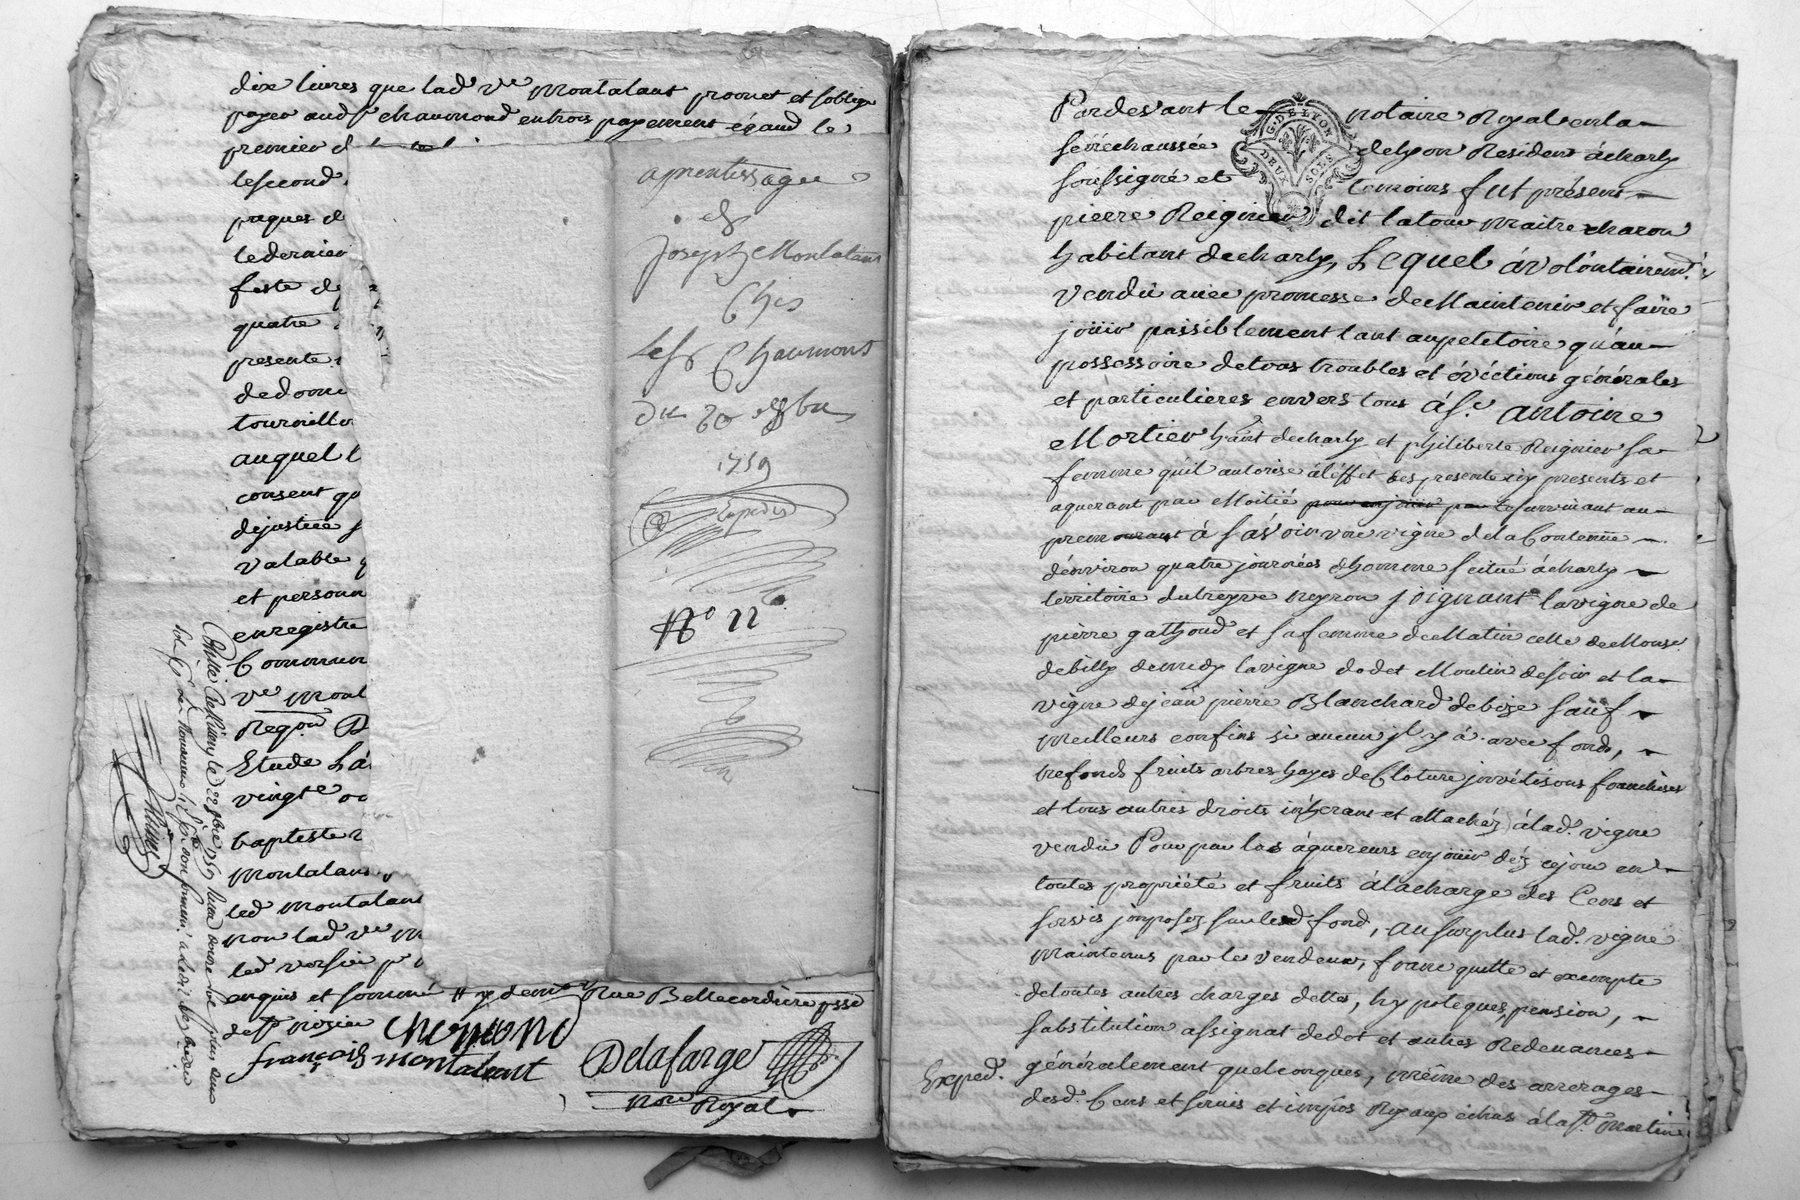 dixe livres que lad ve Montalant promet et soblige
payer aud sr chaumond entrois payement égaud le
premier d
lesecond
paques d
lederaier
feste de
quatre
presente
dedom
tournillo
auquel l
consent qu
dejustice
valable
et person
enregistre
Commun
ve Mont
Reqon D
Etude La
vingte oc
baptiste
Montalan
led Montalant
non lad ve M
led versie p
enquis et sommé dem Rue Bellecordiere
chomond
françois montalant
Delafarge
nore Royal
apprentissage
de
Joseph Montalant
Ches
Le sr Chaumont
Du 20 8bre
1759
Expedié
No 22
Pardevant le notaire Royal enla
sénéchaussée delyon Resident àcharly
soussigné et temoins fut présent
G. DE LYON
DEUX SOLS
pierre Reignier dit latour maitre charon
habitant decharly, Lequel à volontairemt
vendu avec promesse deMaintenir et faire
joüir paisiblement tant aupetitoire qu'au
possessoire detous troubles et évictions générales
et particulieres envers tous à sr antoine
Mortier habt decharly et philiberte Reignier sa
femme quil autorise àléffet des presente icy presents et
aquerant par Moitié pour enjoüir par lesurvivant au
prem mourant à sàvoir une vigne dela Contenüe
dénviron quatre journées dhomme scitué àcharly
territoire dubreyve neyron joignant lavigne de
pierre gathoud et safemme deMatin celle deMonsr
debilly demidy lavigne dodet Moulin desoir et la
vigne dejean pierre Blanchard debize sauf
meilleurs confins si aucun jl y à avec fond,
trefond fruits arbres hayes deClôture jnvétisons franchises
et tous autres droits inhérans et attachéz àlad. vigne
vendu Pour par les àquereurs enjoüir déz cejour en
toutes propriété et fruits àlacharge des Cens et
servis jmposéz surled fond, au surplus lad. vigne
maintenus par le vendeur, franc quitte et exempte
detoutes autres charges dettes, hypoteques, pension,
substitution assignat dedot et autres Redevances
généralement quelconques, même des arrerages
Exped.
desd. Cens et servis et impos Royaux échus àla st martin